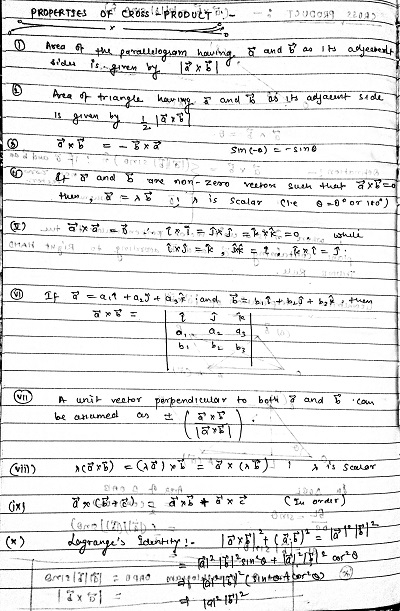 PROPERTIES OF CROSS-PRODUCT :-
(i) Area of the parallelogram having a⃗ and b⃗ as its adjacent
sides is given by |a⃗ × b⃗|
(ii) Area of triangle having a⃗ and b⃗ as its adjacent side
is given by 1/2 |a⃗ × b⃗|
(iii) a⃗ × b⃗ = - b⃗ × a⃗ sin(-θ) = -sinθ
(iv) If a⃗ and b⃗ are non-zero vectors such that a⃗ × b⃗ = 0
then, a⃗ = λb⃗ ; λ is scalar (i.e θ = 0° or 180°)
(v) a⃗ × a⃗ = 0⃗ î × î = ĵ × ĵ = k̂ × k̂ = 0, while
î × ĵ = k̂, ĵ × k̂ = î, k̂ × î = ĵ
(vi) If a⃗ = a₁î + a₂ĵ + a₃k̂ and b⃗ = b₁î + b₂ĵ + b₃k̂, then
a⃗ × b⃗ = | î ĵ k̂ |
| a₁ a₂ a₃ |
| b₁ b₂ b₃ |
(vii) A unit vector perpendicular to both a⃗ and b⃗ can
be assumed as ± (a⃗ × b⃗ / |a⃗ × b⃗|).
(viii) λ(a⃗ × b⃗) = (λa⃗) × b⃗ = a⃗ × (λb⃗) ; λ is scalar
(ix) a⃗ × (b⃗ + c⃗) = a⃗ × b⃗ + a⃗ × c⃗ (In order)
(x) Lagrange's Identity :- |a⃗ × b⃗|² + (a⃗.b⃗)² = |a⃗|² |b⃗|²
= |a⃗|² |b⃗|² sin²θ + |a⃗|² |b⃗|² cos²θ
= |a⃗|² |b⃗|² (sin²θ + cos²θ)
= |a⃗|² |b⃗|²